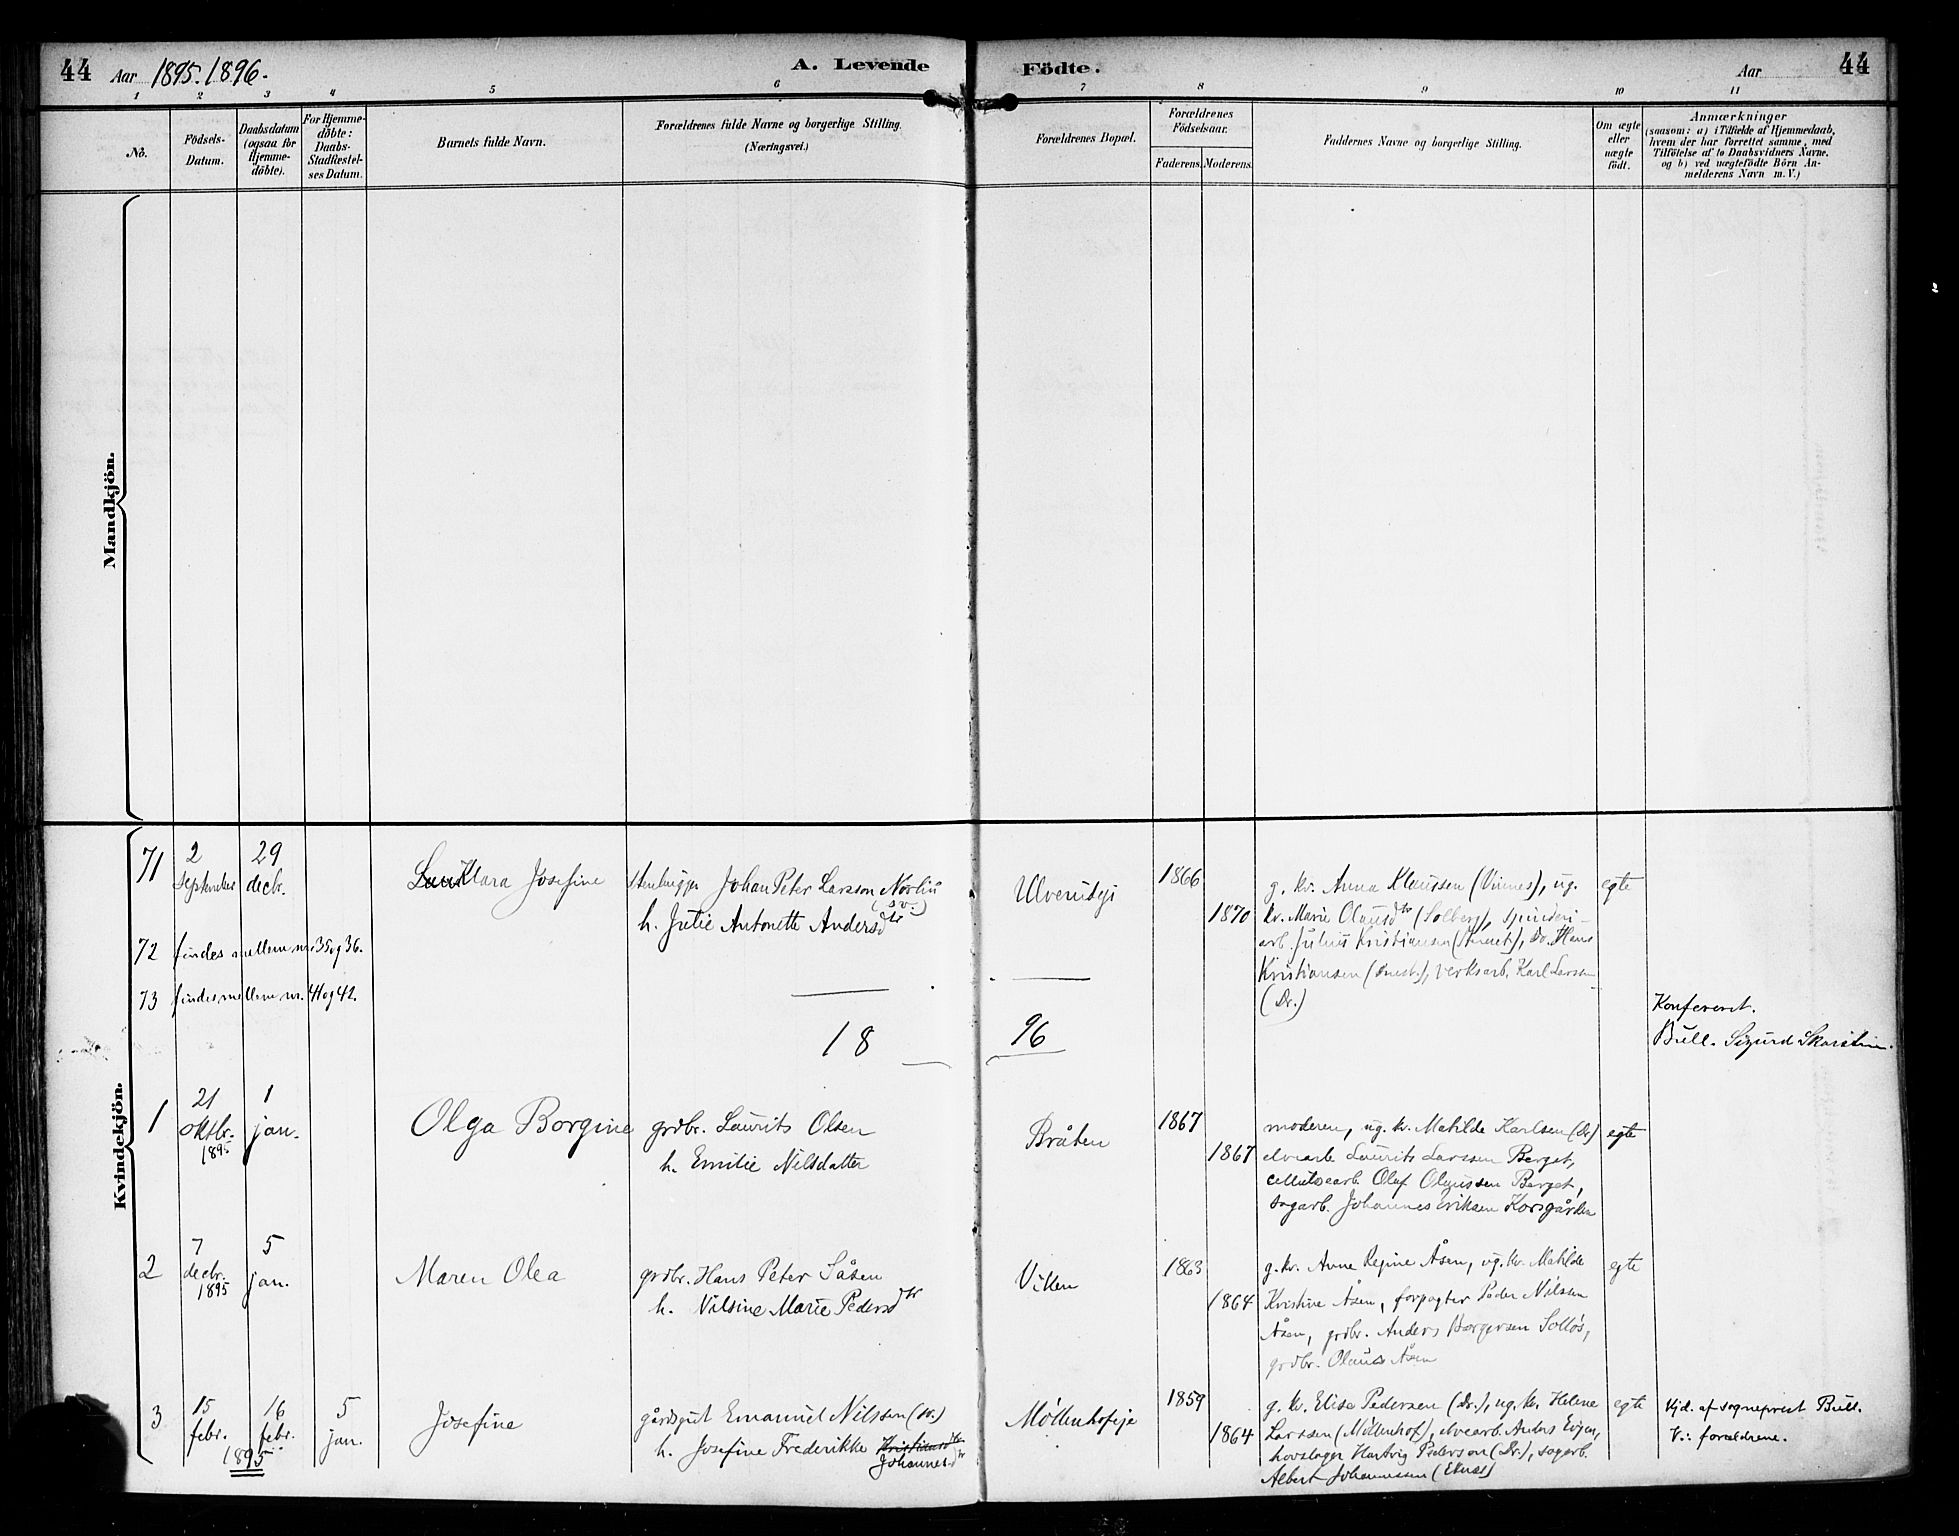 44 Aar 1895. 1896. A. Levende Födte. Aar 44
1 2 3 4 5 6 7 8 9 10 11
No.
Födsels-
Datum.
Daabsdatum
(ogsaa for
Hjemme-
döbte).
For Hjemme-
döbte:
Daabs-
Stadfæstel-
ses Datum.
Barnets fulde Navn.
Forældrenes fulde Navne og borgerlige Stilling.
(Næringsvei.)
Forældrenes Bopæl.
Forældrenes
Födselsaar.
Faderens. Moderens.
Faddernes Navne og borgerlige Stilling.
Om ægte
eller
uægte
födt.
Anmærkninger
(saasom: a) i Tilfælde af Hjemmedaab,
hvem der har forrettet samme, med
Tilföielse af to Daabsvidners Navne.
og b) ved uægtefödte Börn An-
melderens Navn m. V.)
Mandkjön.
Kvindekjön.
71
2
september
29
decbr.
Klara Josefine
Johan Peter Larsson Norlin
(sv.)
h. Julie Antonette Andersdtr
Ulverudeje
1866
1870
g. kv. Anna Klaussen (Vinnes), ug.
kv. Marie Olausdtr (Solberg), spinderi-
arb. Julius Kristiansen, Dr. Hans
Kristiansen, verksarb. Karl Larsen
(Dr.)
egte
72 findes mellem nr. 35 og 36.
73 findes mellem nr. 41 og 42.
Konfereret.
Bull. Sigurd Skarstein.
18 96
1
21
oktbr.
1895
1
jan.
Olga Borgine
grdbr. Laurits Olsen
h. Emilie Nilsdatter
Bråten
1867
1867
moderen, ug. kv. Mathilde Karlsen (Dr)
elvearb. Laurits Larssen Berget,
cellulosearb. Olaf Olaussen Berget,
sagarb. Johannes Eriksen Korsgården
egte
2
7
decbr.
1895
5
jan.
Maren Olea
grdbr. Hans Peter Såsen
h. Nilsine Marie Pedersdtr
Viken
1863
1864
g. kv. Anne Regine Åsen, ug. kv. Matilde
Kristine Åsen, forpagter Peder Nilssen
Åsen, grdbr. Anders Borgersen Solløs,
grdbr. Olaus Åsen
egte
3
15
febr.
16
febr.
1895
5
jan.
Josefine
gårdsgut Emanuel Nilsson (sv.)
h. Josefine Frederikke Kristiansdtr
Johannesdtr
Møllenhofeje
1859
1864
g. kv. Elise Pedersen (Dr.), ug. kv. Helene
Larssen (Möllenhof), elvearb. Anders Evjen,
hovslager Hartvig Pedersen (Dr.), sagarb.
Albert Johannessen (Eknes)
egte
Hjd. af sogneprest Bull.
V.: forældrene.